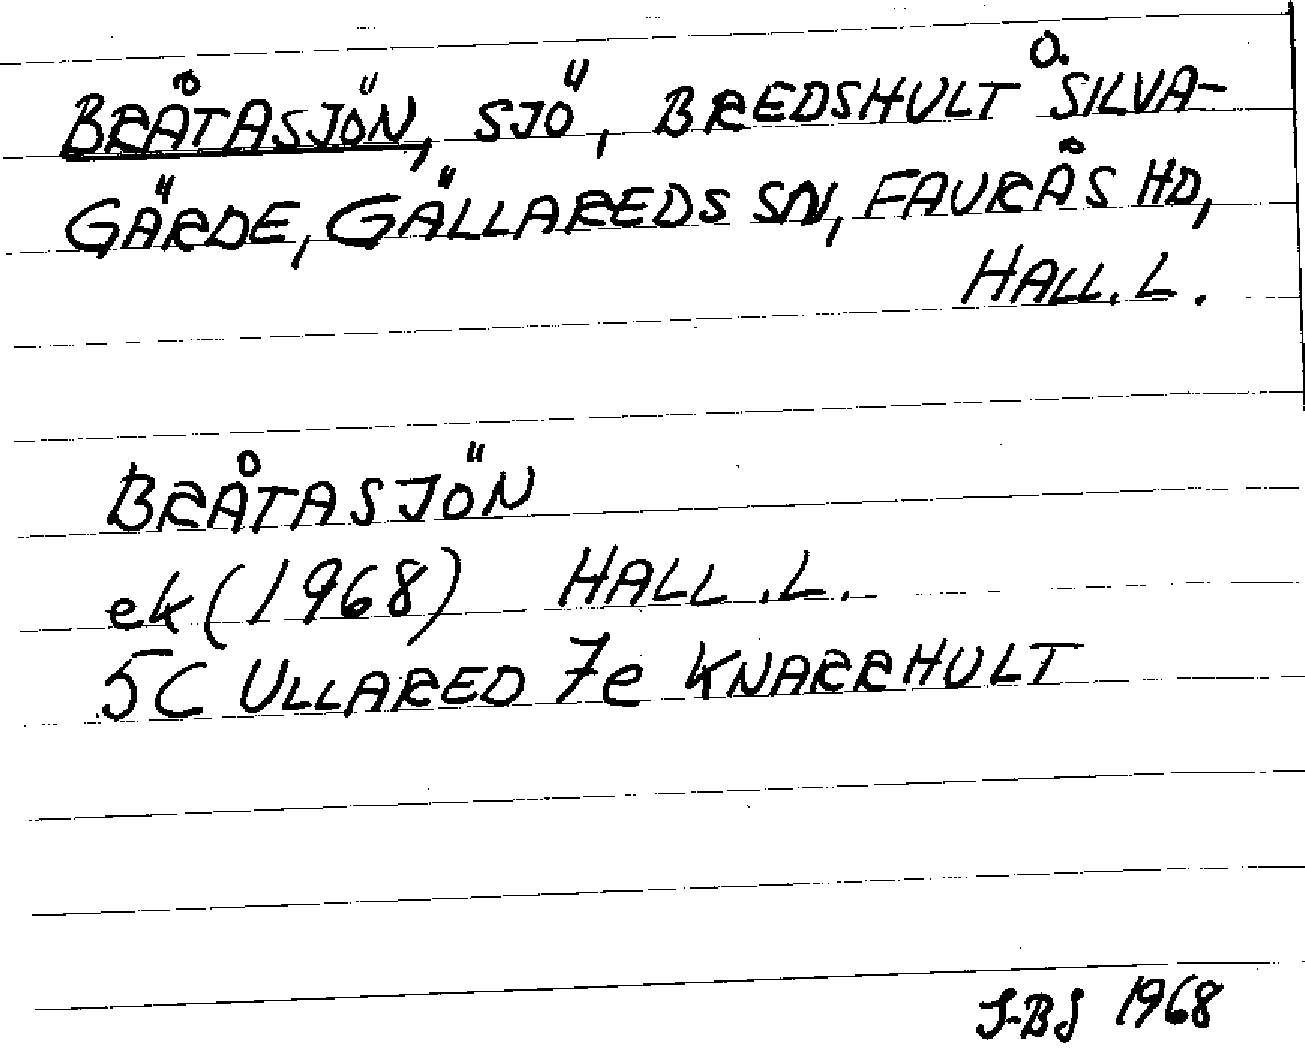 BRÅTASJÖN, SJÖ, BREDSHULT O. SILVA-
GÄRDE, GÄLLAREDS SN, FAURÅS HD,
HALL. L.
BRÅTASJÖN
ek (1968) HALL. L.
5C ULLARED 7e KNARRHULT
1968